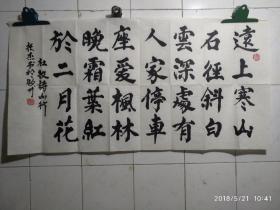 遠上寒山
石徑斜白
雲深處有
人家停車
座爱楓林
晚霜葉紅
於二月花
杜牧詩山行
2018/5/21 10:41